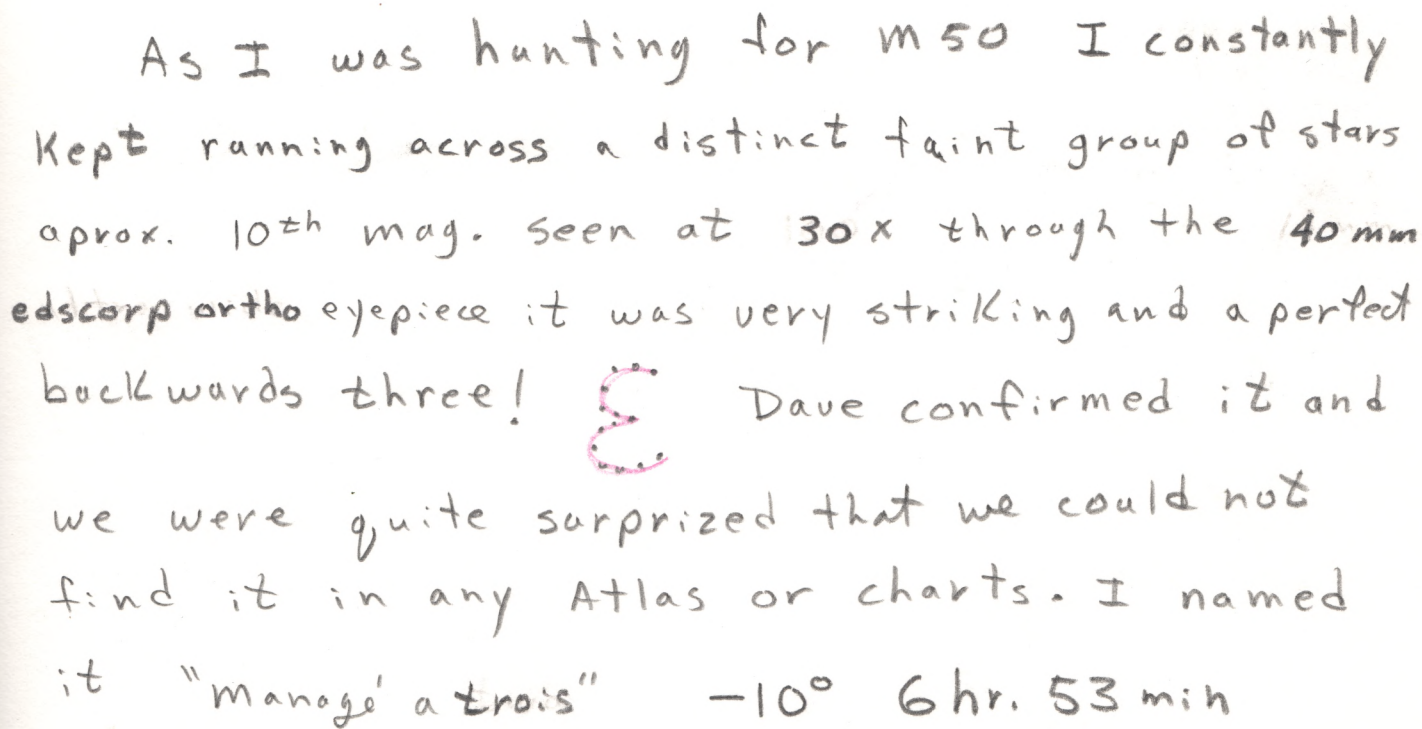 As I was hunting for m50 I constantly
Kept running across a distinct faint group of stars
aprox. 10th mag. seen at 30x through the 40mm
edscorp ortho eyepiece it was very striking and a perfect
backwards three! Dave confirmed it and
we were quite surprized that we could not
find it in any Atlas or charts. I named
it "managé a trois" -10° 6hr. 53 min